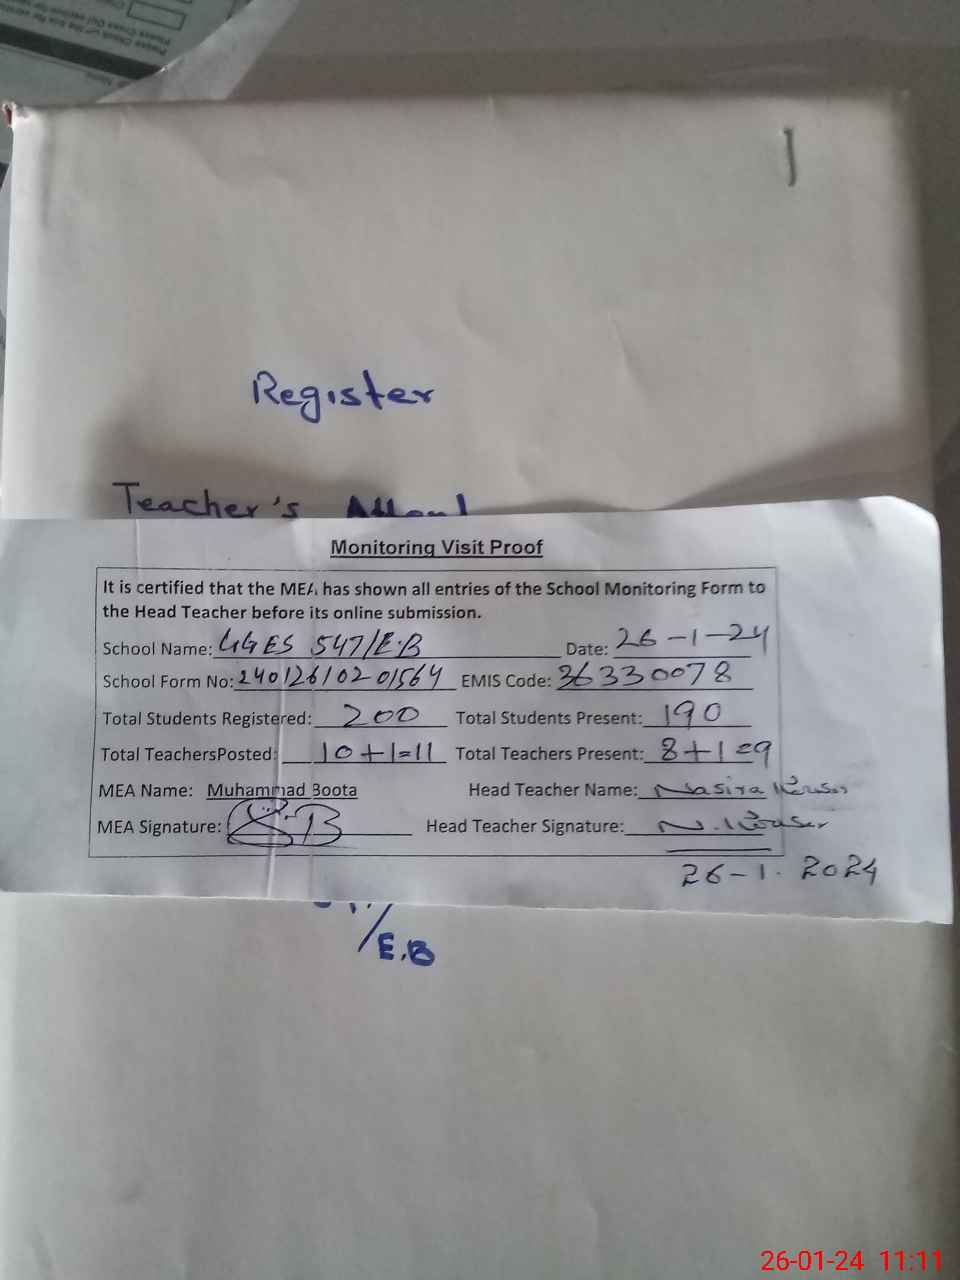 Register
Teacher's Attend
Monitoring Visit Proof
It is certified that the MEA has shown all entries of the School Monitoring Form to
the Head Teacher before its online submission.
School Name: GGES 547/E.B Date: 26-1-24
School Form No: 24012610201564 EMIS Code: 36330078
Total Students Registered: 200 Total Students Present: 190
Total TeachersPosted: 10+1=11 Total Teachers Present: 8+1=9
MEA Name: Muhammad Boota Head Teacher Name: Nasira Kousar
MEA Signature: Head Teacher Signature: N. Kousar
26-1-2024
/E.B
26-01-24 11:11